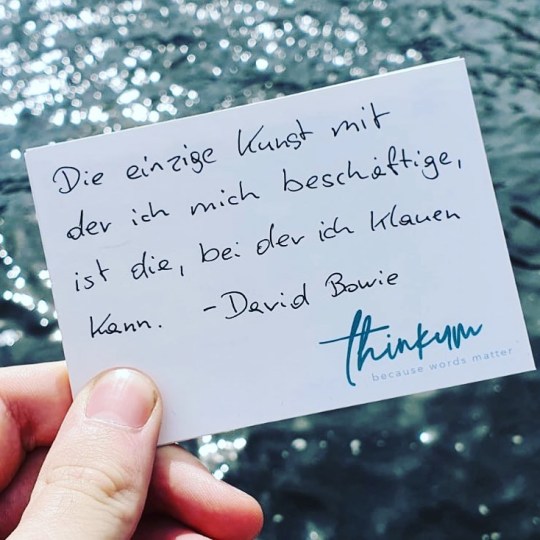 Die einzige Kunst mit
der ich mich beschäftige,
ist die, bei der ich klauen
kann. - David Bowie
thinkym
because words matter